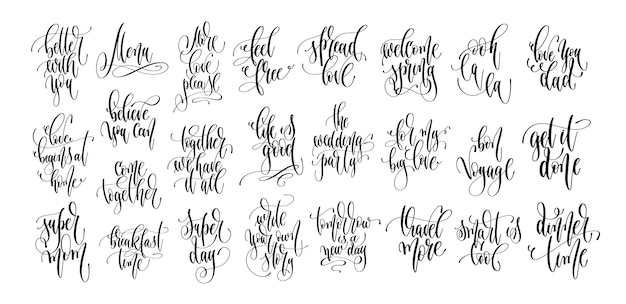 better
with
you
Menu
More
love
please
feel
free
spread
love
welcome
spring
ooh
la
la
love you
dad
love
begins at
home
believe
you can
together
we have
it all
life is
good
the
wedding
party
for my
big love
bon
voyage
get it
done
come
together
super
mom
breakfast
time
Super
day
write
your own
story
tomorrow
is a
new day
travel
more
smart is
cool
dinner
time